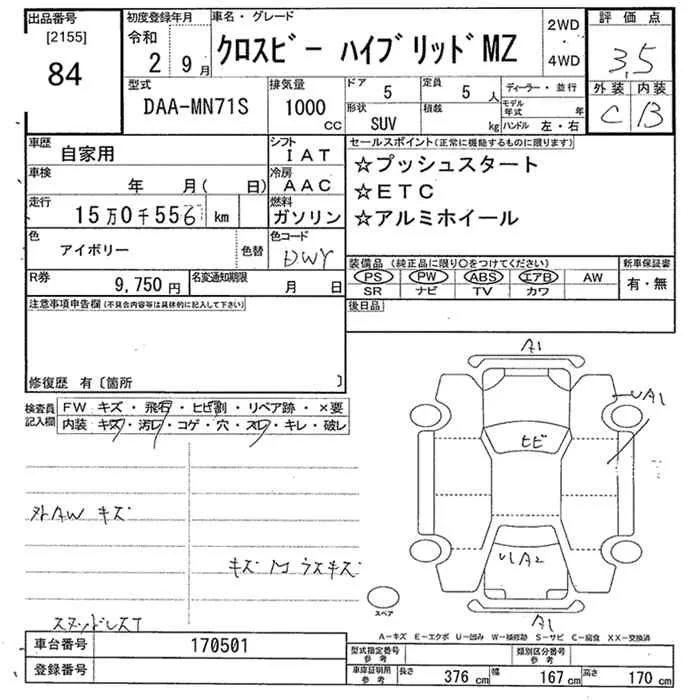 出品番号
[2155]
84
初度登録年月
令和
2 9月
車名・グレード
クロスビー ハイブリッドMZ
2WD
4WD
評価点
3.5
外装 内装
C B
型式
DAA-MN71S
排気量
1000
cc
ドア
5
定員
5 人
形状
SUV
積載
kg
ディーラー・並行
モデル年式 年
ハンドル 左・右
車歴
自家用
シフト
IAT
車検
年 月( 日)
冷房
AAC
走行
15万0千556 km
燃料
ガソリン
色
アイボリー
色替
色コード
R券
9,750円
名変通知期限
月 日
セールスポイント(正常に機能するものに限ります)
☆プッシュスタート
☆ETC
☆アルミホイール
装備品(純正品に限り○をつけてください)
PS PW ABS エアB AW
SR ナビ TV カワ
新車保証書
有・無
後日品
注意事項申告欄(不具合内容等は具体的に記入して下さい)
修復歴 有〔箇所 〕
検査員
記入欄
FW キズ・飛石・ヒビ割・リペア跡・×要
内装 キズ・汚レ・コゲ・穴・スレ・キレ・破レ
外AW キズ
スタッドレスT
A1
UA1
ヒビ
UA2
A1
スペア
A−キズ E−エクボ U−凹み W−補修跡 S−サビ C−腐食 XX−交換済
車台番号
170501
登録番号
型式指定番号
参考
類別区分番号
参考
車庫証明用
参考
長さ
376 cm
幅
167 cm
高さ
170 cm